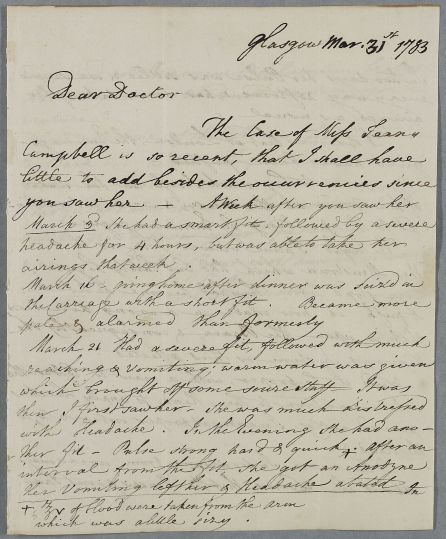 Glasgow Mar. 31st 1783
Dear Doctor
The Case of Miss Jeany
Campbell is so recent, that I shall have
little to add besides the occurrences since
you saw her — A Week after you saw her
March 3d She had a smart fit, followed by a severe
headache for 4 hours, but was able to take her
airings that week.
March 16 - going home after dinner was seized in
the Carriage with a short fit. Became more
alarmed than formerly
March 21 Had a severe fit, followed with much
reaching & vomiting; warm water was given
which brought off some sour stuff It was
then I first saw her. She was much distressed
with Headache. In the Evening she had ano-
ther fit - Pulse strong hard & quick. + After an
interval from the fit She got an Anodyne
Her Vomiting left her & Headache abated In
+ ℥v of blood were taken from the arm
which was a little sizy.